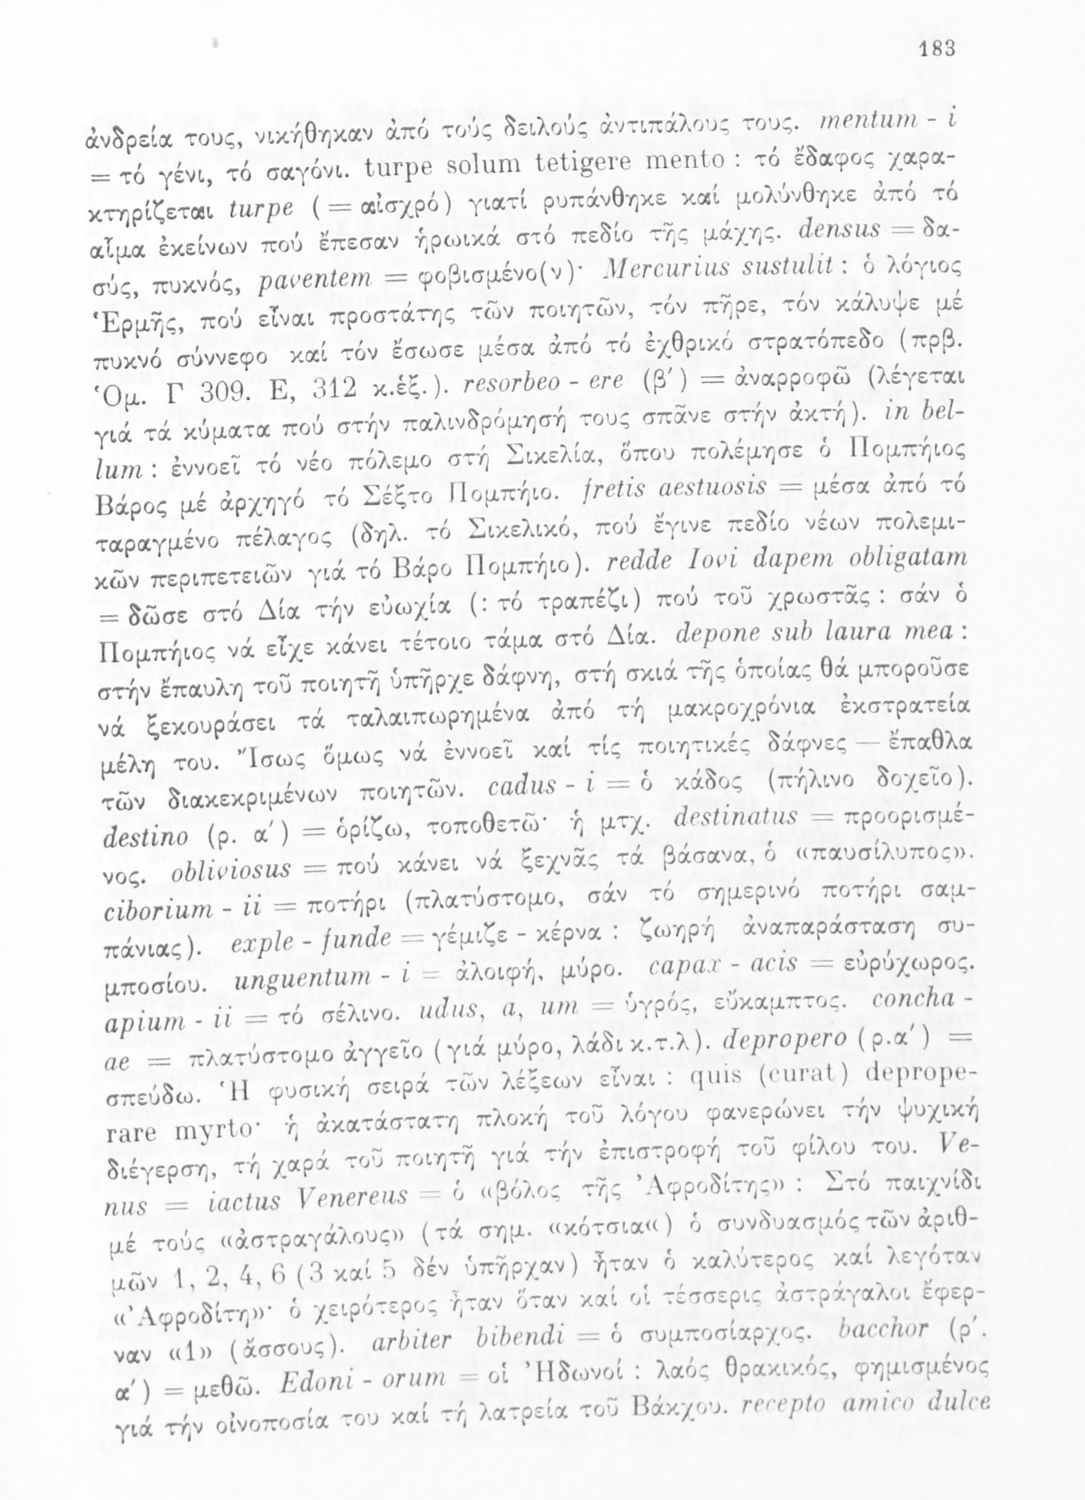 183
ἀνδρεία τους, νικήθηκαν ἀπό τούς δειλούς ἀντιπάλους τους. mentum - i
= τό γένι, τό σαγόνι. turpe solum tetigere mento : τό ἔδαφος χαρα-
κτηρίζεται turpe ( = αἰσχρό) γιατί ρυπάνθηκε καί μολύνθηκε ἀπό τό
αἷμα ἐκείνων πού ἔπεσαν ἡρωικά στό πεδίο τῆς μάχης. densus = δα-
σύς, πυκνός, paventem = φοβισμένο(ν)· Mercurius sustulit : ὁ λόγιος
Ἑρμῆς, πού εἶναι προστάτης τῶν ποιητῶν, τόν πῆρε, τόν κάλυψε μέ
πυκνό σύννεφο καί τόν ἔσωσε μέσα ἀπό τό ἐχθρικό στρατόπεδο (πρβ.
Ὁμ. Γ 309. Ε, 312 κ.ἑξ.). resorbeo - ere (β′) = ἀναρροφῶ (λέγεται
γιά τά κύματα πού στήν παλινδρόμησή τους σπᾶνε στήν ἀκτή). in bel-
lum : ἐννοεῖ τό νέο πόλεμο στή Σικελία, ὅπου πολέμησε ὁ Πομπήιος
Βάρος μέ ἀρχηγό τό Σέξτο Πομπήιο. fretis aestuosis = μέσα ἀπό τό
ταραγμένο πέλαγος (δηλ. τό Σικελικό, πού ἔγινε πεδίο νέων πολεμι-
κῶν περιπετειῶν γιά τό Βάρο Πομπήιο). redde Iovi dapem obligatam
= δῶσε στό Δία τήν εὐωχία (: τό τραπέζι) πού τοῦ χρωστᾶς : σάν ὁ
Πομπήιος νά εἶχε κάνει τέτοιο τάμα στό Δία. depone sub laura mea :
στήν ἔπαυλη τοῦ ποιητῆ ὑπῆρχε δάφνη, στή σκιά τῆς ὁποίας θά μποροῦσε
νά ξεκουράσει τά ταλαιπωρημένα ἀπό τή μακροχρόνια ἐκστρατεία
μέλη του. Ἴσως ὅμως νά ἐννοεῖ καί τίς ποιητικές δάφνες — ἔπαθλα
τῶν διακεκριμένων ποιητῶν. cadus - i = ὁ κάδος (πήλινο δοχεῖο).
destino (ρ. α′) = ὁρίζω, τοποθετῶ· ἡ μτχ. destinatus = προορισμέ-
νος. obliviosus = πού κάνει νά ξεχνᾶς τά βάσανα, ὁ «παυσίλυπος».
ciborium - ii = ποτήρι (πλατύστομο, σάν τό σημερινό ποτήρι σαμ-
πάνιας). exple - funde = γέμιζε - κέρνα : ζωηρή ἀναπαράσταση συ-
μποσίου. unguentum - i = ἀλοιφή, μύρο. capax - acis = εὐρύχωρος.
apium - ii = τό σέλινο. udus, a, um = ὑγρός, εὔκαμπτος. concha -
ae = πλατύστομο ἀγγεῖο (γιά μύρο, λάδι κ.τ.λ). depropero (ρ.α′) =
σπεύδω. Ἡ φυσική σειρά τῶν λέξεων εἶναι : quis (curat) deprope-
rare myrto· ἡ ἀκατάστατη πλοκή τοῦ λόγου φανερώνει τήν ψυχική
διέγερση, τή χαρά τοῦ ποιητῆ γιά τήν ἐπιστροφή τοῦ φίλου του. Ve-
nus = iactus Venereus = ὁ «βόλος τῆς Ἀφροδίτης» : Στό παιχνίδι
μέ τούς «ἀστραγάλους» (τά σημ. «κότσια«) ὁ συνδυασμός τῶν ἀριθ-
μῶν 1, 2, 4, 6 (3 καί 5 δέν ὑπῆρχαν) ἦταν ὁ καλύτερος καί λεγόταν
«Ἀφροδίτη»· ὁ χειρότερος ἦταν ὅταν καί οἱ τέσσερις ἀστράγαλοι ἔφερ-
ναν «1» (ἄσσους). arbiter bibendi = ὁ συμποσίαρχος. bacchor (ρ′.
α′) = μεθῶ. Edoni - orum = οἱ Ἠδωνοί : λαός θρακικός, φημισμένος
γιά τήν οἰνοποσία του καί τή λατρεία τοῦ Βάκχου. recepto amico dulce